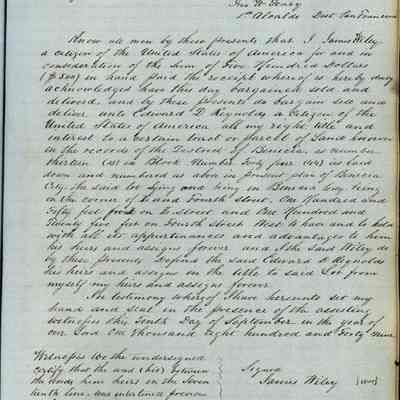 Jno W. Geary
1st Alcalde Dist San Francisco
Know all men by these presents that I James Wiley
a citizen of the United States of America for and in
consideration of the Sum of Five Hundred Dollars
($500) in hand paid the receipt whereof is hereby duly
acknowledged have this day bargained sold and
deliverd, and by these presents do bargain sell and
deliver unto Edward D Reynolds a Citizen of the
United States of America all my right title and
interest to a certain tract or parcel of Land known
in the records of the District of Benecia as number
thirteen (13) in Block Number Forty four (44) as laid
down and numbered as above in present plan of Benecia
City. the said lot lying and being in Benecia City being
on the corner of and Fourth street, One Hundred and
Fifty feet front on street and One Hundred and
Twenty five feet on Fourth Street West to have and to hold
with all its appertinances and advantages to him
his heirs and assigns forever and I the said Wiley do
by these presents Defend the said Edward D Reynolds
his heirs and assigns in the title to said Lot from
myself my heirs and assigns forever
In testimony whereof I have hereunto set my
hand and seal in the presence of the attesting
witnesses this Tenth Day of September in the year of
our Lord One thousand Eight hundred and Forty Nine
Witnesses We the undersigned
certify that the and (his) between
the words him heirs in the Seven
teenth line, was interlined
Signed
James Wiley